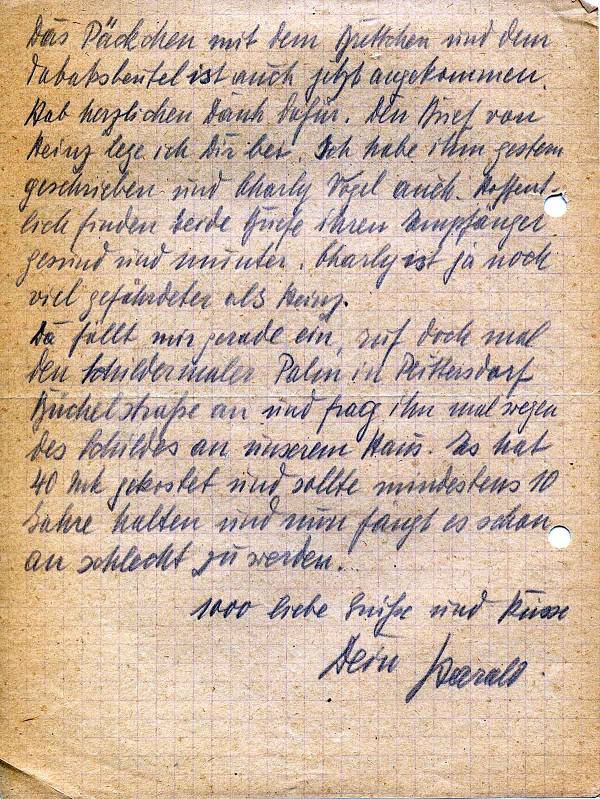 Das Päckchen mit dem Brettchen und dem
Tabaksbeutel ist auch jetzt angekommen.
Hab herzlichen Dank dafür. Den Brief von
Heinz lege ich Dir bei. Ich habe ihm gestern
geschrieben und Charly Vogel auch. Hoffent-
lich finden beide Briefe ihren Empfänger
gesund und munter. Charly ist ja noch
viel gefährdeter als Heinz.
Da fällt mir gerade ein, ruf doch mal
den Schildermaler Palm in
Büchelstraße an und frag ihn mal wegen
des Schildes an unserem Haus. Es hat
40 Mk gekostet und sollte mindestens 10
Jahre halten und nun fängt es schon
an schlecht zu werden.
1000 liebe Grüße und Küsse
Dein Harald